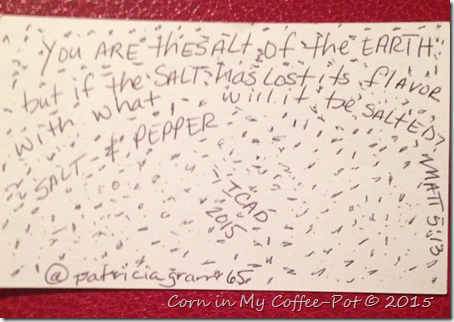 YOU ARE theSALt Of the EARTH
but if the SALT has Lost its flAVOR
with what, will it be SALtED?
MATT 5:13
SALT & PEPPER
ICAD
2015
@patriciagrant65
Corn in My Coffee-Pot © 2015